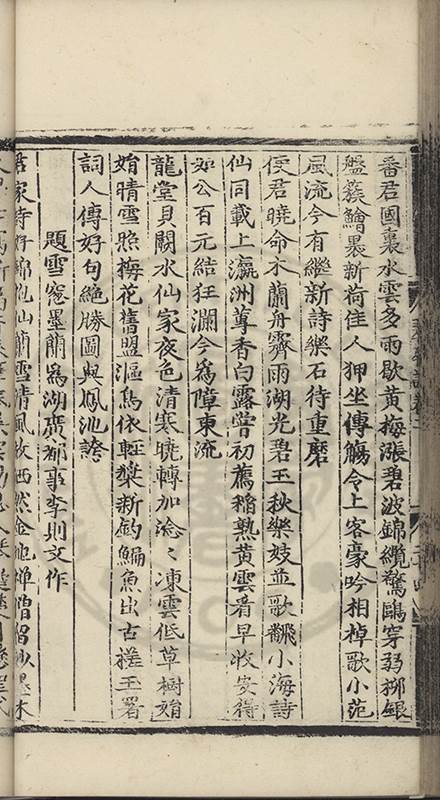 番君國裏水雲多雨歇黃梅漲碧波錦纜驚鷗穿弱柳銀
盤簇鱠裹新荷佳人狎坐傳觴令上客豪吟相棹歌小范
風流今有繼新詩樂石待重磨
使君曉命木蘭舟霽雨湖光碧玉秋樂妓並歌飜小海詩
仙同載上瀛洲尊香白露嘗初薦稻熟黃雲看早收安得
如公百元結狂瀾今爲障東流
龍堂貝闕水仙家夜色清寒曉轉加淰〻凍雲低草樹始
始晴雪照梅花舊盟漚鳥依輕槳新釣鯿魚出古槎玉署
詞人傳好句絕勝圖與鳳池誇
題雪窓墨蘭爲湖廣都事李則文作
君家
蘭雪清風故洒然金